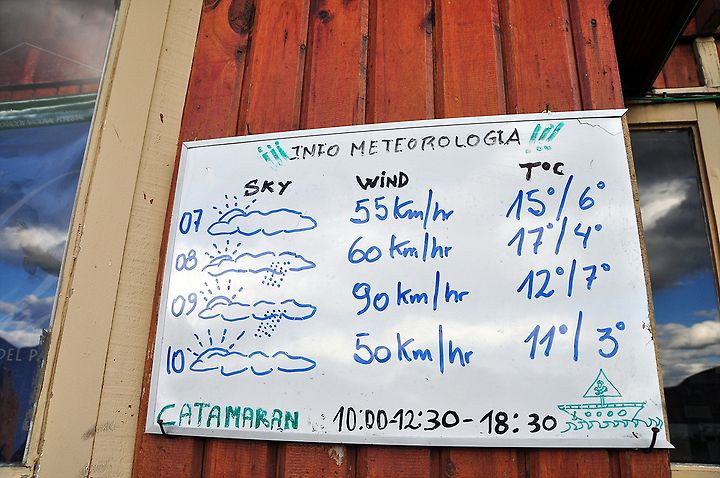 ¡¡¡INFO METEOROLOGIA!!!
SKY WIND T°C
07 55 Km/hr 15°/6°
08 60 Km/hr 17°/4°
09 90 Km/hr 12°/7°
10 50 Km/hr 11°/3°
CATAMARAN 10:00-12:30-18:30
NACIONAL FORESTAL
DEL